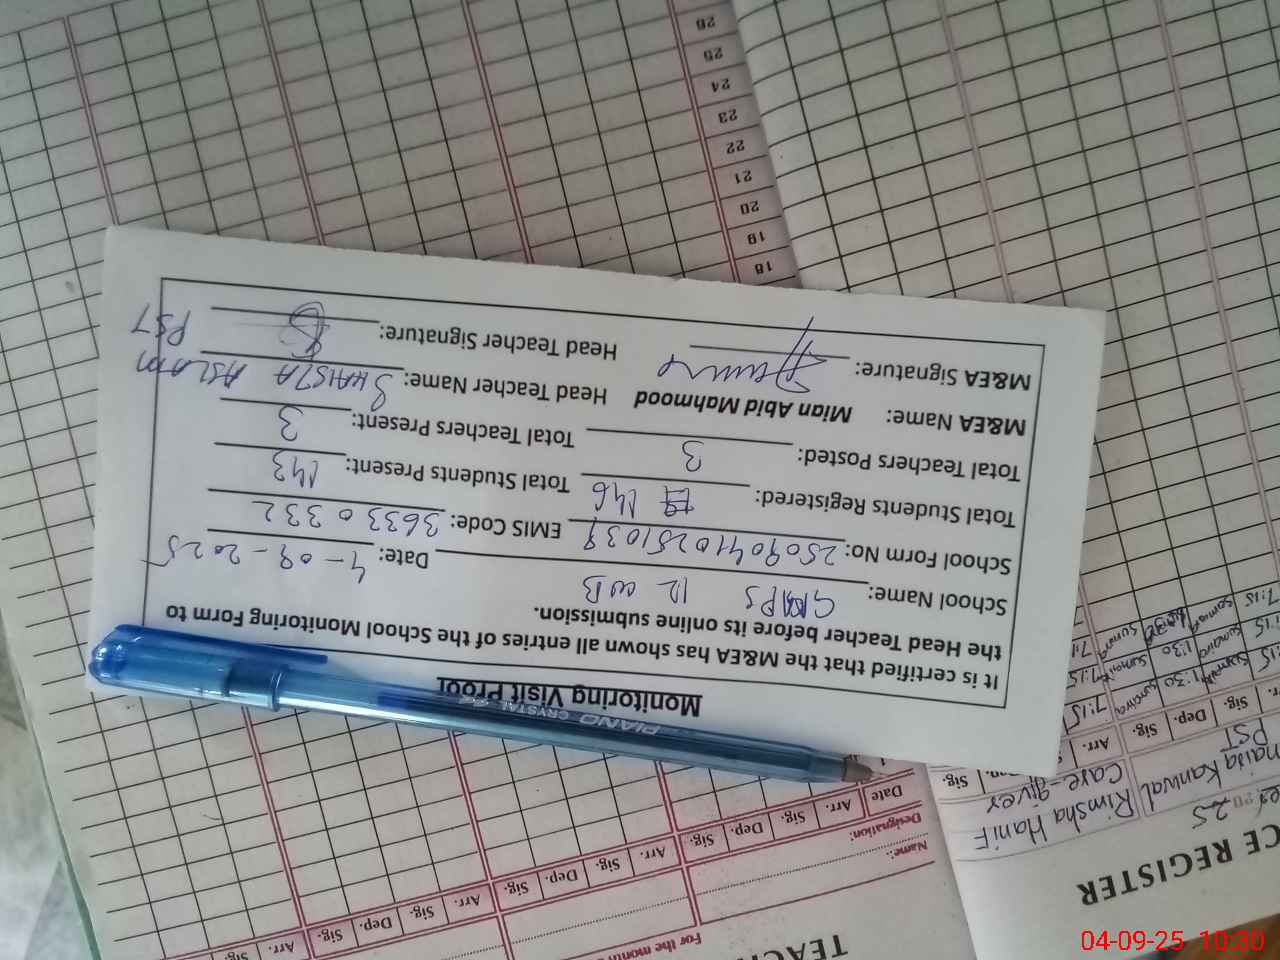 Monitoring Visit Proof
It is certified that the M&EA has shown all entries of the School Monitoring Form to
the Head Teacher before its online submission.
School Name: GMPS 12 WB Date: 4-09-2025
School Form No: 25090410251039 EMIS Code: 36330332
Total Students Registered: 146 Total Students Present: 143
Total Teachers Posted: 3 Total Teachers Present: 3
M&EA Name: Mian Abid Mahmood Head Teacher Name: SHAISTA ASLAM
PST
M&EA Signature: Head Teacher Signature:
PIANO CRYSTAL
CE REGISTER
25
Rimsha Hanif
Care-giver
Kanwal
PST
Arr. Sig. Dep. Sig.
7:15
1:30
TEAC
For the month
Name:
Designation:
Date Arr. Sig. Dep. Sig. Arr. Sig. Dep. Sig. Arr. Sig. Dep. Sig. Arr.
18
19
20
21
22
23
24
25
26
04-09-25 10:30